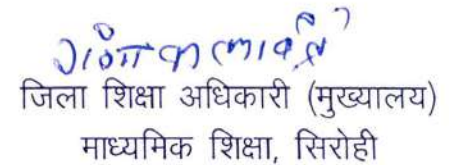 जिला शिक्षा अधिकारी (मुख्यालय)
माध्यमिक शिक्षा, सिरोही